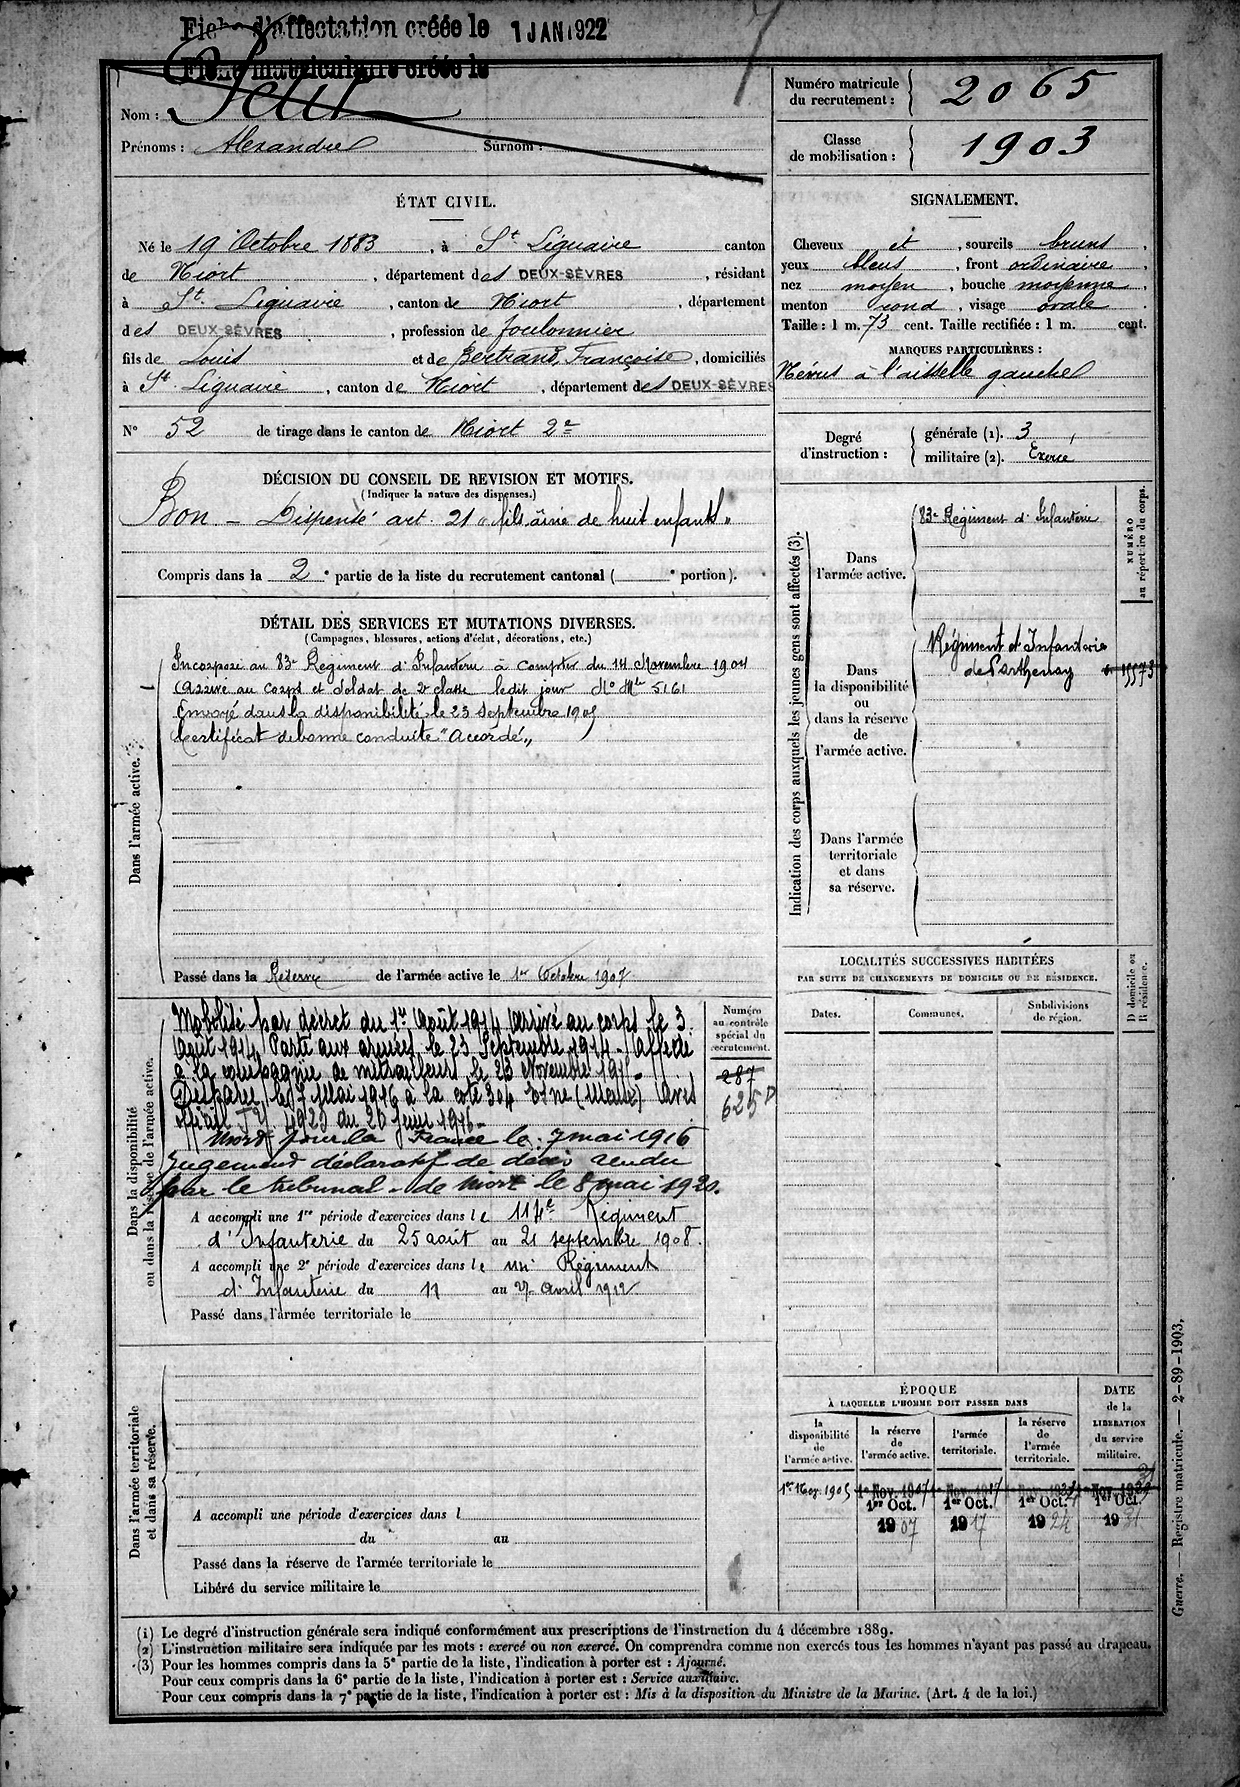 Fiche d'affectation créée le 1 JAN 1922
Fiche matriculaire créée le
Nom : Petit
Prénoms : Alexandre Surnom :
Numéro matricule du recrutement : 2065
Classe de mobilisation : 1903
ÉTAT CIVIL.
Né le 19 Octobre 1883, à St Liguaire canton
de Niort, département des DEUX-SÈVRES, résidant
à St. Liguaire, canton de Niort, département
des DEUX-SÈVRES, profession de foulonnier
fils de Louis et de Bertrand, Françoise, domiciliés
à St. Liguaire, canton de Niort, département des DEUX-SÈVRES
N° 52 de tirage dans le canton de Niort 2e
SIGNALEMENT.
Cheveux et, sourcils bruns,
yeux bleus, front ordinaire,
nez moyen, bouche moyenne,
menton rond, visage ovale.
Taille : 1 m. 73 cent. Taille rectifiée : 1 m. cent.
MARQUES PARTICULIÈRES :
à l'aisselle gauche
Degré d'instruction : générale (1). 3
militaire (2). Exercé
DÉCISION DU CONSEIL DE REVISION ET MOTIFS.
(Indiquer la nature des dispenses.)
Bon – Dispensé art. 21 "fils aîné de huit enfants"
Compris dans la 2e partie de la liste du recrutement cantonal ( e portion).
DÉTAIL DES SERVICES ET MUTATIONS DIVERSES.
(Campagnes, blessures, actions d'éclat, décorations, etc.)
Dans l'armée active.
Incorporé au 83e Régiment d'Infanterie à compter du 14 Novembre 1904
Arrivé au corps et soldat de 2e classe ledit jour No Mle 5161
Envoyé dans la disponibilité le 23 septembre 1905
Certificat de bonne conduite "Accordé"
Passé dans la Réserve de l'armée active le 1er Octobre 1907
Dans la disponibilité ou dans la réserve de l'armée active.
Mobilisé par décret du 1er Août 1914 Arrivé au corps le 3
Août 1914 Parti aux armées le 23 Septembre 1914. Affecté
à la compagnie de mitrailleurs le 23 Novembre 1915.
Disparu le 7 Mai 1916 à la cote 304 (Meuse) Avis
officiel 4925 du 20 Juin 1916.
Mort pour la France le 7 mai 1916
Jugement déclaratif de décès rendu
par le tribunal de Niort le 8 mai 1920.
A accompli une 1re période d'exercices dans le 114e Régiment
d'Infanterie du 25 août au 21 septembre 1908.
A accompli une 2e période d'exercices dans le 114e Régiment
d'Infanterie du 11 au 27 avril 1912
Passé dans l'armée territoriale le
Numéro au contrôle spécial du recrutement.
287
625 D
Dans l'armée territoriale et dans sa réserve.
A accompli une période d'exercices dans l
du au
Passé dans la réserve de l'armée territoriale le
Libéré du service militaire le
Indication des corps auxquels les jeunes gens sont affectés (3).
NUMÉRO au répertoire du corps.
Dans l'armée active.
83e Régiment d'Infanterie
Dans la disponibilité ou dans la réserve de l'armée active.
Régiment d'Infanterie
de Parthenay
Dans l'armée territoriale et dans sa réserve.
LOCALITÉS SUCCESSIVES HABITÉES
PAR SUITE DE CHANGEMENTS DE DOMICILE OU DE RÉSIDENCE.
D domicile ou R résidence.
Dates. Communes. Subdivisions de région.
ÉPOQUE
À LAQUELLE L'HOMME DOIT PASSER DANS
DATE de la LIBÉRATION du service militaire.
la disponibilité de l'armée active.
la réserve de l'armée active.
l'armée territoriale.
la réserve de l'armée territoriale.
1er Nov. 1905
1er Oct. 1907
1er Oct. 1917
1er Oct. 1924
1er Oct. 1931
(1) Le degré d'instruction générale sera indiqué conformément aux prescriptions de l'instruction du 4 décembre 1889.
(2) L'instruction militaire sera indiquée par les mots : exercé ou non exercé. On comprendra comme non exercés tous les hommes n'ayant pas passé au drapeau.
(3) Pour les hommes compris dans la 5e partie de la liste, l'indication à porter est : Ajourné.
Pour ceux compris dans la 6e partie de la liste, l'indication à porter est : Service auxiliaire.
Pour ceux compris dans la 7e partie de la liste, l'indication à porter est : Mis à la disposition du Ministre de la Marine. (Art. 4 de la loi.)
Guerre. — Registre matricule. — 2-89-1903.